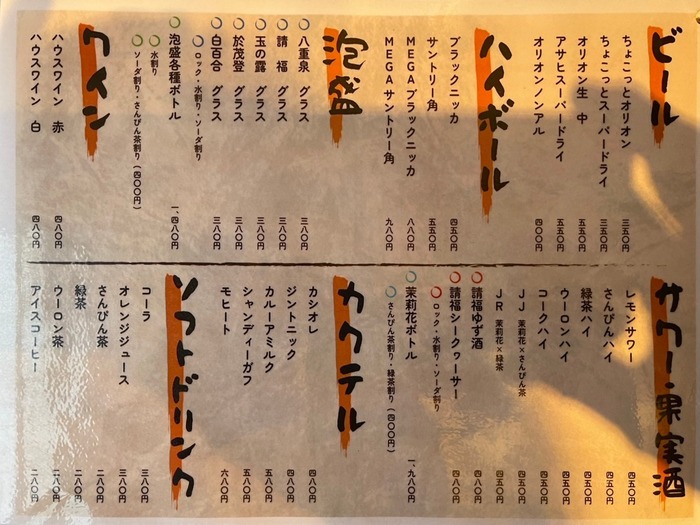 ビール
ちょこっとオリオン 三五〇円
ちょこっとスーパードライ 三五〇円
オリオン生 中 五五〇円
アサヒスーパードライ 五五〇円
オリオンノンアル 四〇〇円
ハイボール
ブラックニッカ 四五〇円
サントリー角 五五〇円
MEGAブラックニッカ 八八〇円
MEGAサントリー角 九八〇円
泡盛
八重泉 グラス 三八〇円
請福 グラス 三八〇円
玉の露 グラス 三八〇円
於茂登 グラス 三八〇円
白百合 グラス 三八〇円
ロック・水割り・ソーダ割り
泡盛各種ボトル 一、四八〇円
水割り
ソーダ割り・さんぴん茶割り(四〇〇円)
ワイン
ハウスワイン 赤 四八〇円
ハウスワイン 白 四八〇円
サワー・果実酒
レモンサワー 四五〇円
さんぴんハイ 四五〇円
緑茶ハイ 四五〇円
ウーロンハイ 四五〇円
コークハイ 四五〇円
JJ 茉莉花×さんぴん茶 四五〇円
JR 茉莉花×緑茶 四五〇円
請福ゆず酒 四八〇円
請福シークヮーサー 四八〇円
ロック・水割り・ソーダ割り
茉莉花ボトル 一、九八〇円
さんぴん茶割り・緑茶割り(四〇〇円)
カクテル
カシオレ 四八〇円
ジントニック 四八〇円
カルーアミルク 五八〇円
シャンディーガフ 五八〇円
モヒート 六八〇円
ソフトドリンク
コーラ 三八〇円
オレンジジュース 三八〇円
さんぴん茶 二八〇円
緑茶 二八〇円
ウーロン茶 二八〇円
アイスコーヒー 二八〇円